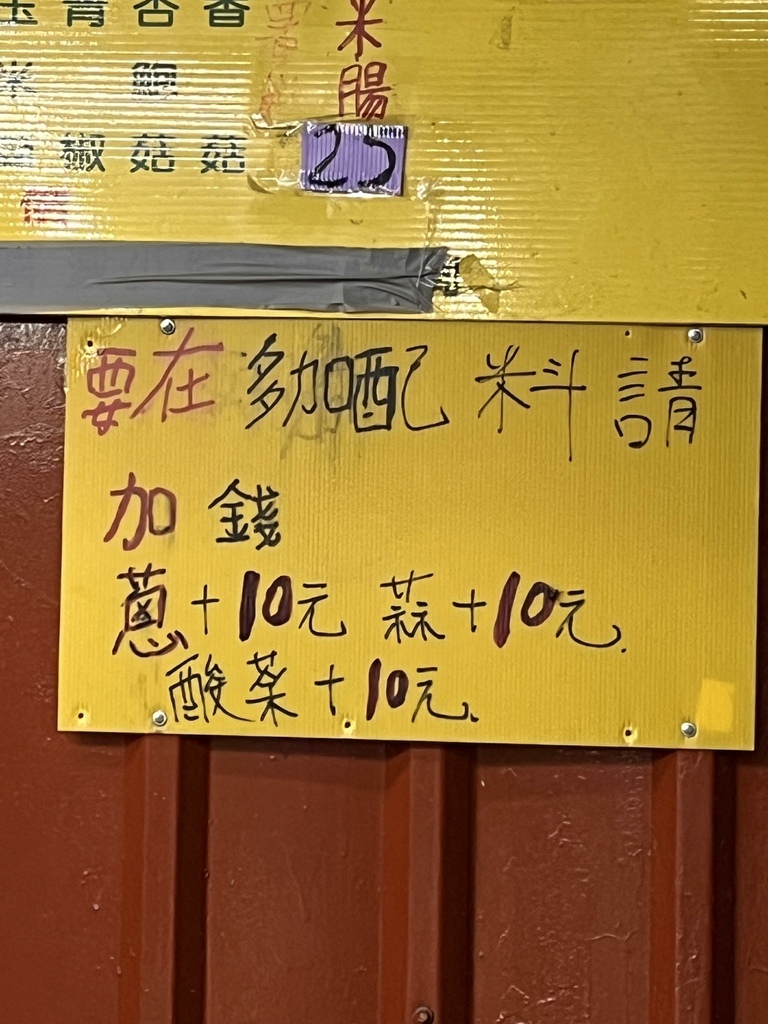 玉青杏香 米
米 鮑 腸
椒菇菇 25
要在多加配料請
加錢
蔥+10元 蒜+10元.
酸菜+10元.